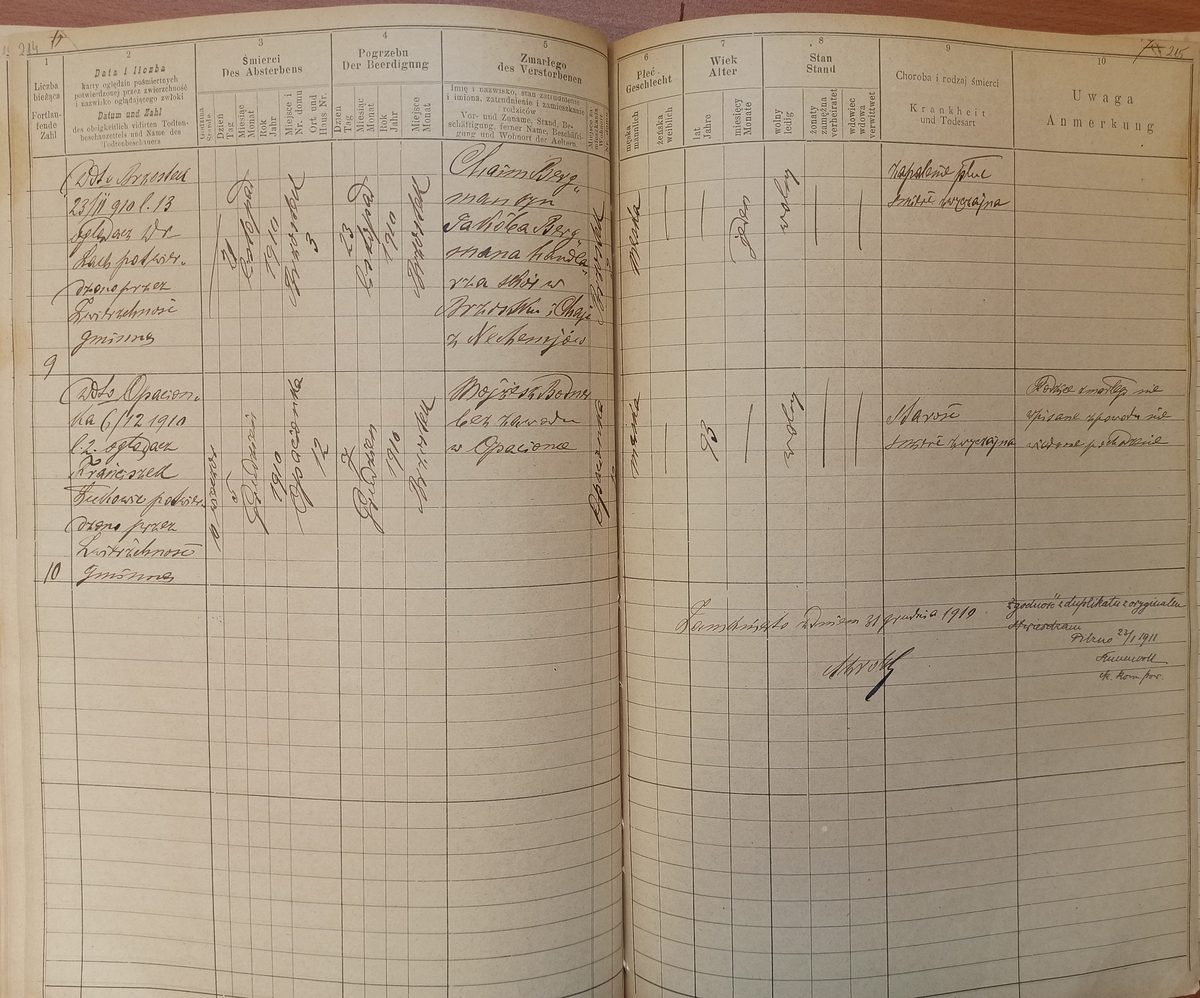 214
215
1
2
3
4
5
6
7
8
9
10
Liczba
bieżąca
Fortlau-
fende
Zahl
Data i liczba
karty oględzin pośmiertnych
potwierdzonej przez zwierzchność
i nazwisko oglądającego zwłoki
Datum und Zahl
des obrigkeitlich vidirten Todten-
beschauzettels und Name des
Todtenbeschauers
Śmierci
Des Absterbens
Godzina
Stunde
Dzień
Tag
Miesiąc
Monat
Rok
Jahr
Miejsce i
Nr. domu
Ort und
Haus Nr.
Pogrzebu
Der Beerdigung
Dzień
Tag
Miesiąc
Monat
Rok
Jahr
Miejsce
Monat
Zmarłego
des Verstorbenen
Imię i nazwisko, stan zatrudnienie
i imiona, zatrudnienie i zamieszkanie
rodziców
Vor- und Zuname, Stand, Be-
schäftigung, ferner Name, Beschäfti-
gung und Wohnort der Aeltern
Płeć
Geschlecht
męska
männlich
żeńska
weiblich
Wiek
Alter
lat
Jahre
miesięcy
Monate
Stan
Stand
wolny
ledig
żonaty
zamężna
verheiratet
wdowiec
wdowa
verwittwet
Choroba i rodzaj śmierci
Krankheit
und Todesart
Uwaga
Anmerkung
9
Brzostek
23/11 910 l. 13
oglądacz Dr
Lach potwier-
dzono przez
Zwierzchność
gminną
21
Listopad
1910
Brzostek
3
23
Listopad
1910
Brzostek
Chaim Berg-
man syn
Jakóba Berg
mana handla-
rza skór w
Brzostku i Chaje
z Nechemjów
Brzostek
męska
jeden
wolny
Zapalenie płuc
śmierć zwyczajna
10
Opacion-
ka 6/12 1910
l 2. oglądacz
Franciszek
potwier-
dzono przez
Zwierzchność
gminną
5
Grudzień
1910
Opacionka
12
7
Grudzień
1910
Brzostek
Mojżesz Bodner
bez zawodu
w Opacionce
Opacionka
męska
93
wolny
Starość
śmierć zwyczajna
Rodzice zmarłego nie
wpisane z powodu nie
wiadome pochodzenie
Zamknięto z dniem 31 grudnia 1910
Zgodność z duplikatu z oryginałem
stwierdzam
Pilzno 23/1 1911